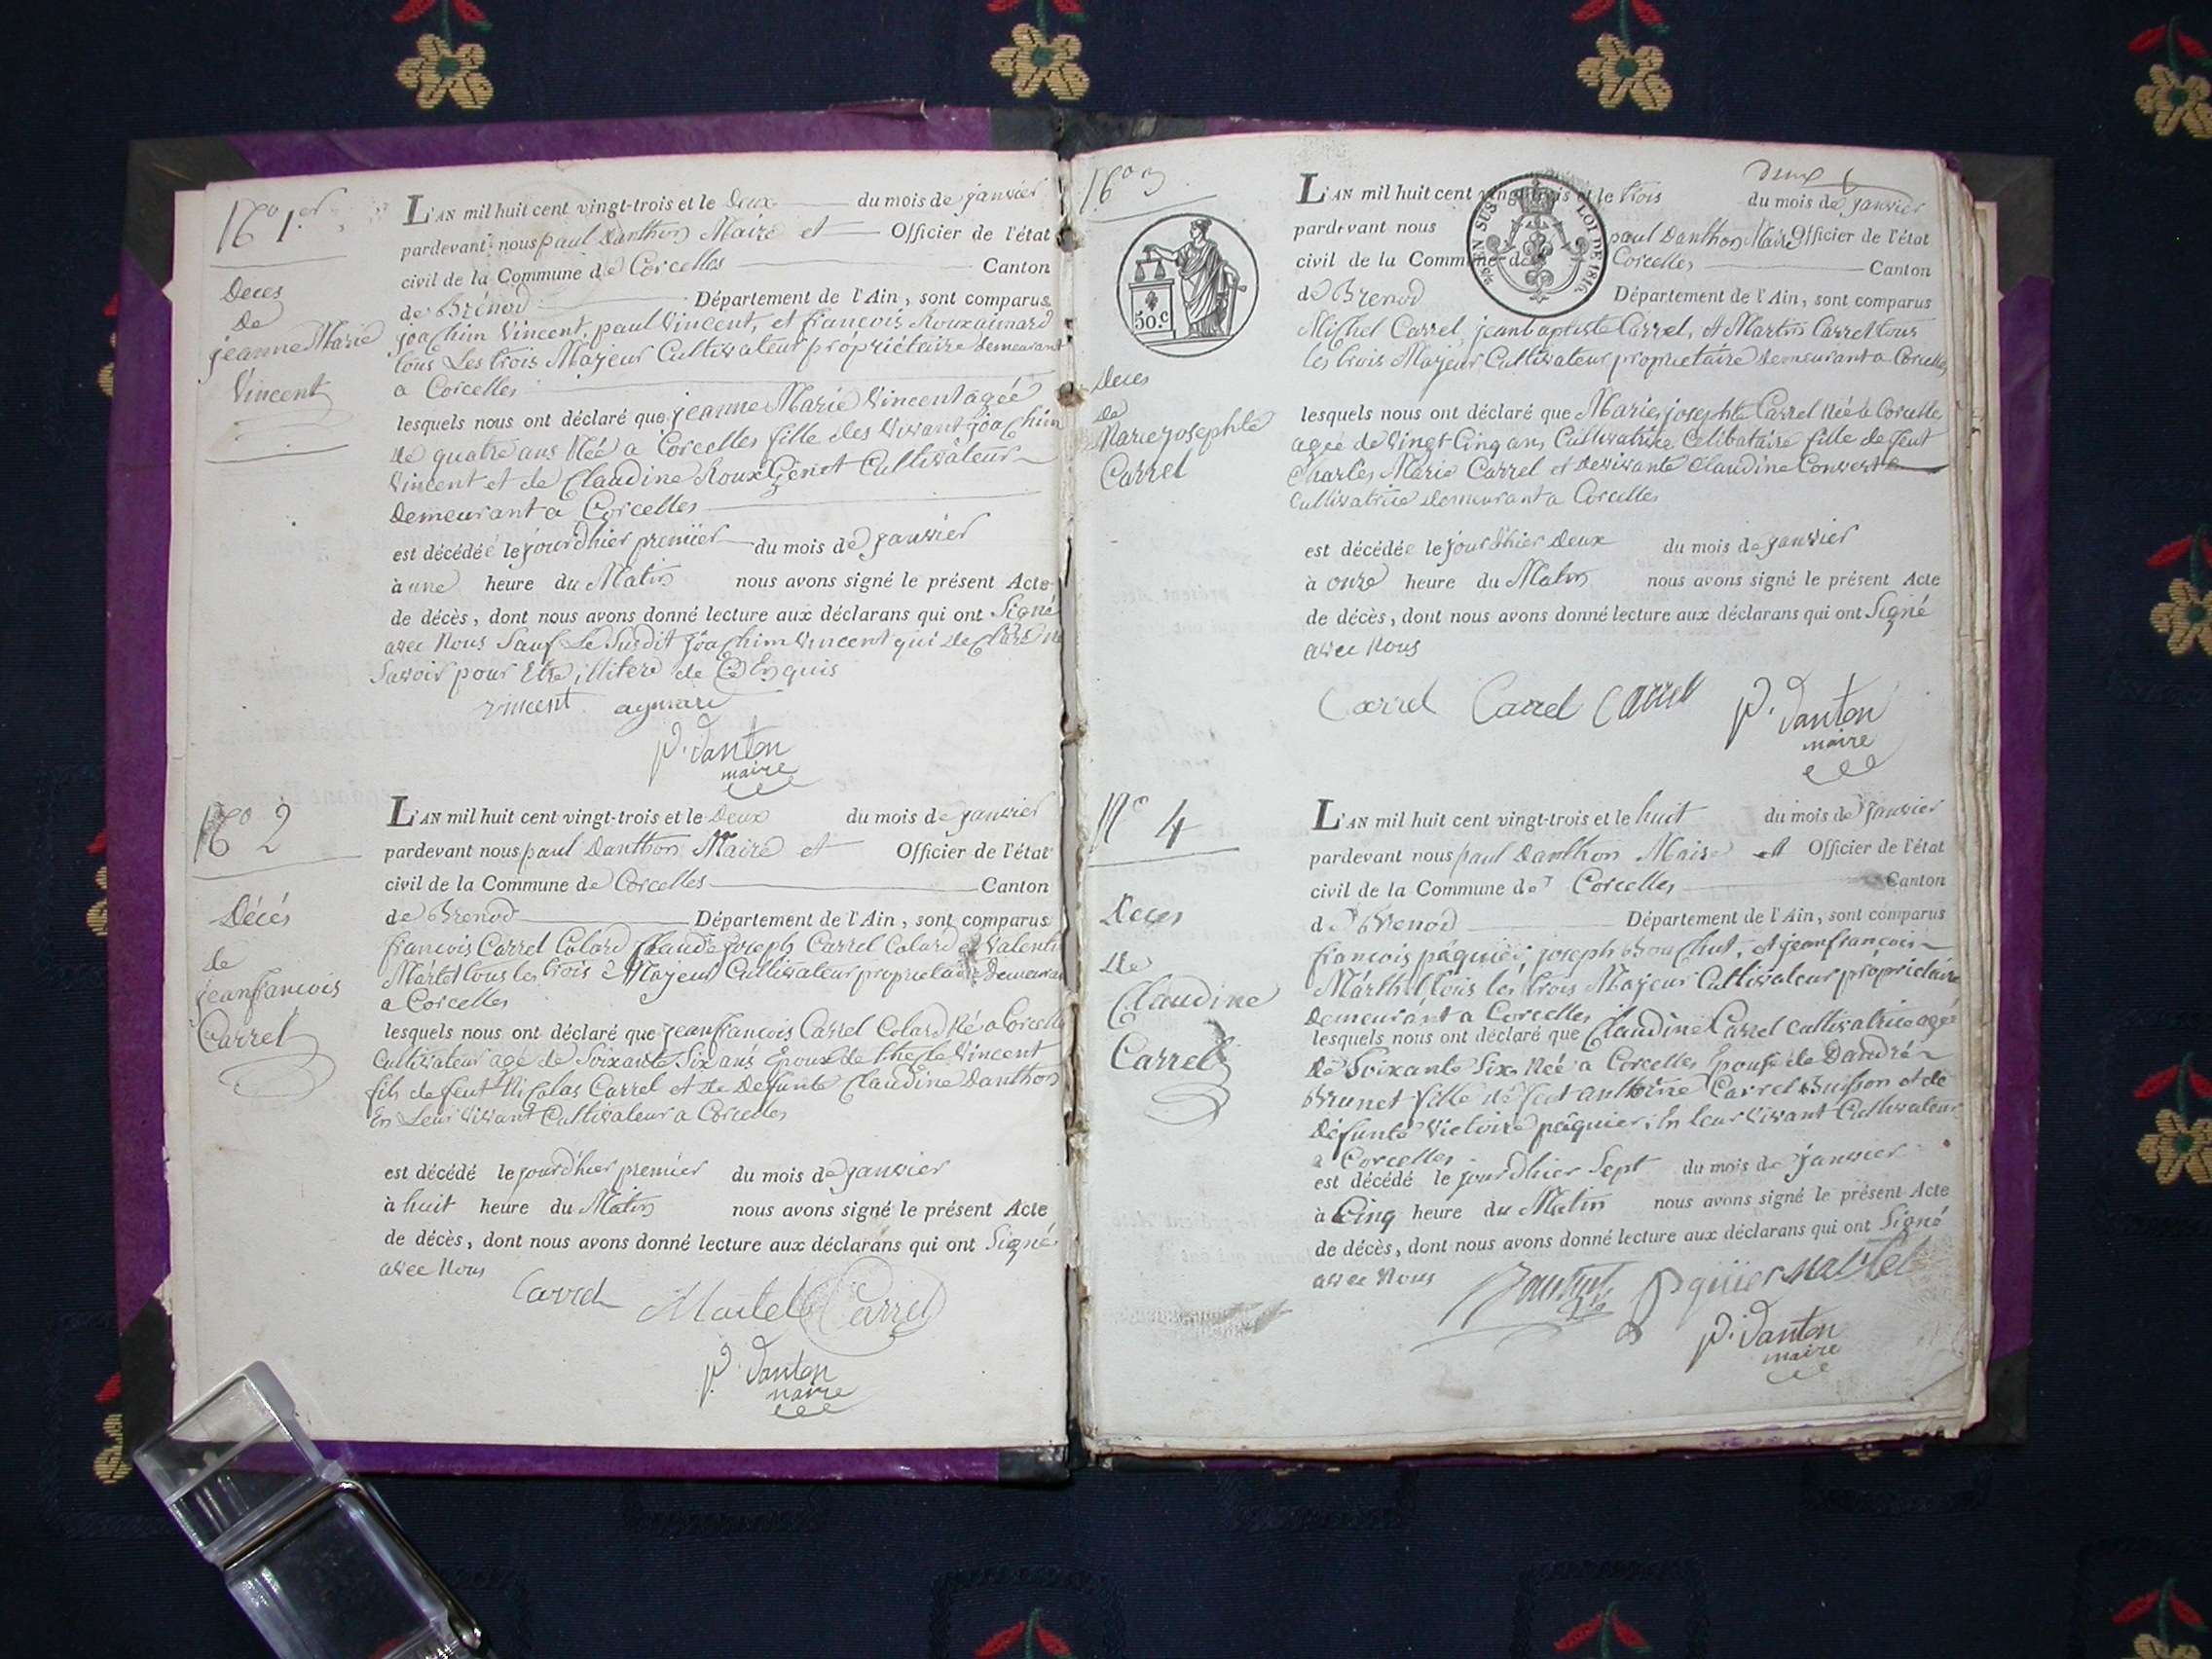 N.o 1.er
Deces
De
jeanne Marie
Vincent
L'AN mil huit cent vingt-trois et le Deux du mois de janvier
pardevant nous paul Danthon Maire et Officier de l'état
civil de la Commune de Corcelles Canton
de Brénod Département de l'Ain, sont comparus
joachim Vincent, paul Vincent, et francois Rouxaimard
tous Les trois Majeur Cultivateur propriétaire demeurant
a Corcelles
lesquels nous ont déclaré que jeanne Marie Vincent agée
de quatre ans Née a Corcelles fille des Vivant joachim
Vincent et de Claudine Roux Génet Cultivateur
Demeurant a Corcelles
est décédée le jour d'hier premier du mois de janvier
à une heure du Matin nous avons signé le présent Acte
de décès, dont nous avons donné lecture aux déclarans qui ont Signé
avec Nous Sauf Le Susdit joachim Vincent qui declare ne
Savoir pour Etre illitere de Ce Enquis
vincent aymard
P. Danton
maire
N.o 2
Décés
de
jeanfrancois
Carrel
L'AN mil huit cent vingt-trois et le Deux du mois de janvier
pardevant nous paul Danthon Maire et Officier de l'état
civil de la Commune de Corcelles Canton
de Brenod Département de l'Ain, sont comparus
francois Carrel Colard Claude joseph Carrel Colard et Valenti
Martel tous les trois Majeur Cultivateur proprietaire Demeurant
a Corcelles
lesquels nous ont déclaré que jeanfrancois Carrel Colard Né a Corcelles
Cultivateur agé de Soixante Six ans Epoux de Vincent
fils de feut Nicolas Carrel et de Defunte Claudine Danthon
En Leur Vivant Cultivateur a Corcelles
est décédé le jour d'hier premier du mois de janvier
à huit heure du Matin nous avons signé le présent Acte
de décès, dont nous avons donné lecture aux déclarans qui ont Signé
avec Nous
Carrel Martel Carrel
P. Danton
maire
N.o 3
50.c
Deces
de
Marie josephte
Carrel
deux
EN SUS LOI DE 1816
L'AN mil huit cent vingt-trois et le trois du mois de janvier
pardevant nous paul Danthon Maire Officier de l'état
civil de la Commune de Corcelles Canton
de Brenod Département de l'Ain, sont comparus
Michel Carrel, jeanbaptiste Carrel, et Martin Carrel tous
les trois Majeur Cultivateur proprietaire demeurant a Corcelles
lesquels nous ont déclaré que Marie josephte Carrel Née a Corcelle
agee de Vingt Cinq ans Cultivatrice Célibataire fille de feut
Charles Marie Carrel et de vivante Claudine Convert
Cultivatrice demeurant a Corcelles
est décédée le jour d'hier deux du mois de janvier
à onze heure du Matin nous avons signé le présent Acte
de décès, dont nous avons donné lecture aux déclarans qui ont Signé
avec Nous
Carrel Carrel Carrel
P. Danton
maire
N.o 4
Deces
de
Claudine
Carrel
L'AN mil huit cent vingt-trois et le huit du mois de janvier
pardevant nous paul Danthon Maire et Officier de l'état
civil de la Commune de Corcelles Canton
de Brenod Département de l'Ain, sont comparus
francois pâquier, joseph Bouchut, et jeanfrancois
Marthel tous les trois Majeur Cultivateur propriétaire
demeurant a Corcelles
lesquels nous ont déclaré que Claudine Carrel cultivatrice agée
de Soixante Six Née a Corcelles Epouse de Dandré
Brunet fille de feut anthoine Carrel Buisson et de
Défunte Victoire pâquier, En leur Vivant Cultivateur
a Corcelles
est décédé le jour d'hier Sept du mois de janvier
à Cinq heure du Matin nous avons signé le présent Acte
de décès, dont nous avons donné lecture aux déclarans qui ont Signé
avec Nous
martel
P. Danton
maire